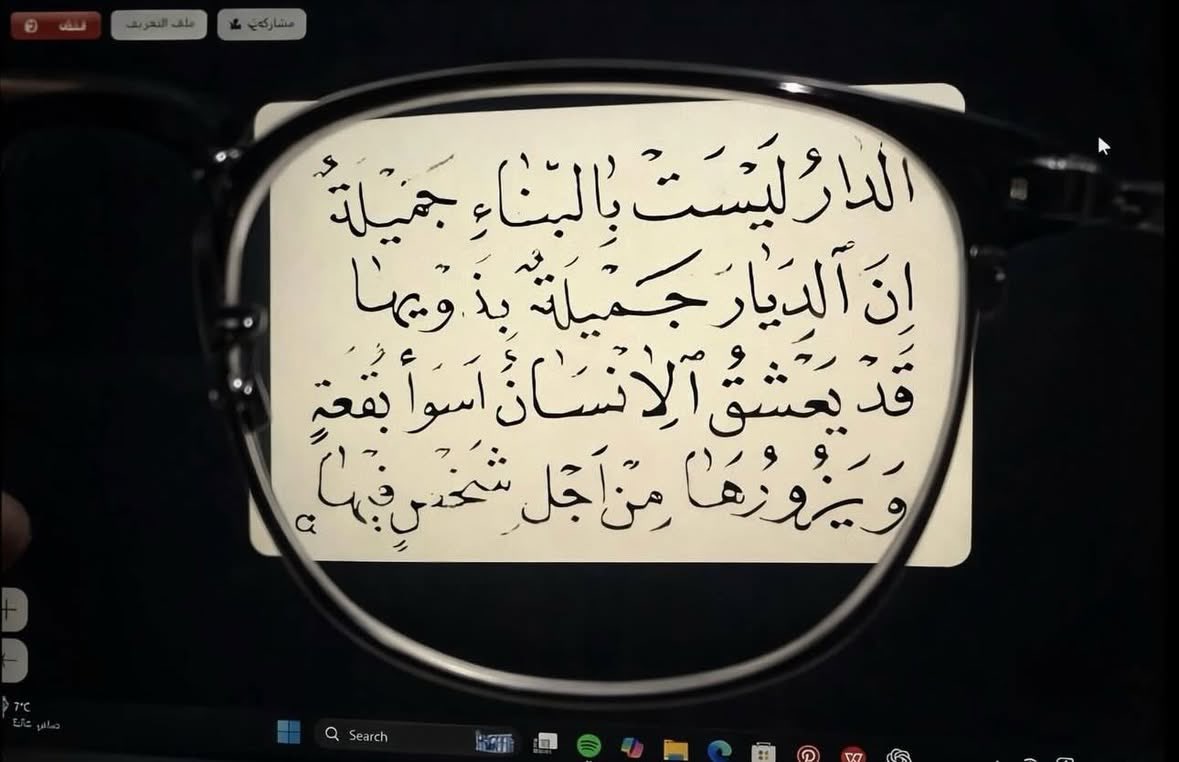 مشاركة
ملف التعريف
الدارُ لَيْسَتْ بِالبِّنَاءِ جَمِيْلَةٌ
إِنَ ٱلدِيَارَ جَمِيْلَةٌ بِذَوِيهَا
قَدْ يَعْشَقُ ٱلإِنْسَانُ أَسَوَأَ بُقْعَةٍ
وَيَزُورُهَا مِنْ أَجْلِ شَخْصٍ فِيهَا
7°C
Search